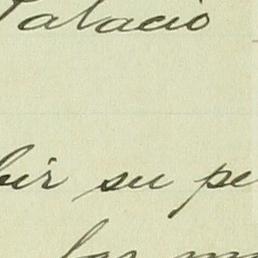 Palacio
bir su pe
las m